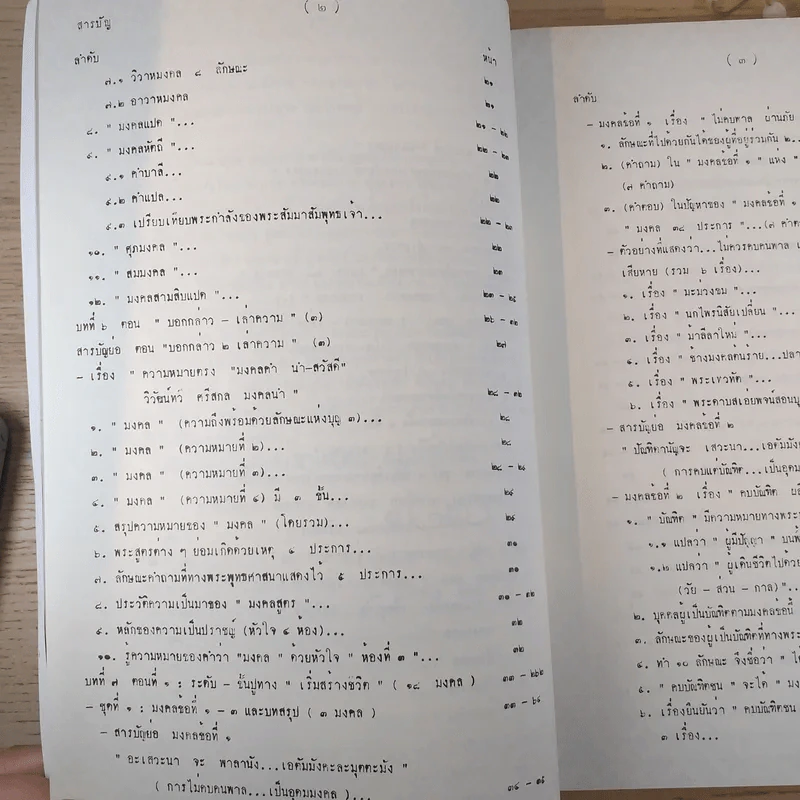 ( ๒ )
สารบัญ
ลำดับ หน้า
๗.๑ วิวาหมงคล ๘ ลักษณะ ๒๑
๗.๒ อาวาหมงคล ๒๑
๘. " มงคลแปด "... ๒๑ - ๒๒
๙. " มงคลหัตถี "... ๒๒ - ๒๓
๙.๑ คำบาลี... ๒๒
๙.๒ คำแปล... ๒๒
๙.๓ เปรียบเทียบพระกำลังของพระสัมมาสัมพุทธเจ้า...
๑๐. " ศุภมงคล "... ๒๒
๑๑. " สมมงคล "... ๒๓
๑๒. " มงคลสามสิบแปด "...
บทที่ ๖ ตอน " บอกกล่าว - เล่าความ " (๓)
สารบัญย่อ ตอน "บอกกล่าว ๒ เล่าความ " (๓) ๒๗
- เรื่อง " ความหมายตรง "มงคลคำ นำ-สวัสดี"
วิวัฒน์ทวี ศรีสกล มงคลนำ "
๑. " มงคล " (ความถึงพร้อมด้วยลักษณะแห่งบุญ ๓)... ๒๘
๒. " มงคล " (ความหมายที่ ๒)... ๒๘
๓. " มงคล " (ความหมายที่ ๓)... ๒๘ - ๒๙
๔. " มงคล " (ความหมายที่ ๔) มี ๓ ชั้น... ๒๙
๕. สรุปความหมายของ " มงคล " (โดยรวม)... ๒๙
๖. พระสูตรต่าง ๆ ย่อมเกิดด้วยเหตุ ๔ ประการ... ๓๑
๗. ลักษณะคำถามที่ทางพระพุทธศาสนาแสดงไว้ ๕ ประการ... ๓๑
๘. ประวัติความเป็นมาของ " มงคลสูตร "... ๓๑ - ๓๒
๙. หลักของความเป็นปราชญ์ (หัวใจ ๔ ห้อง)... ๓๒
๑๐. รู้ความหมายของคำว่า "มงคล " ด้วยหัวใจ " ห้องที่ ๓ "... ๓๒
บทที่ ๗ ตอนที่ ๑ : ระดับ - ขั้นปูทาง " เริ่มสร้างชีวิต " ( ๑๘ มงคล )
- ชุดที่ ๑ : มงคลข้อที่ ๑ - ๓ และบทสรุป ( ๓ มงคล )
- สารบัญย่อ มงคลข้อที่ ๑
" อะเสวะนา จะ พาลานัง...เอตัมมังคะละมุตตะมัง "
( การไม่คบคนพาล...เป็นอุดมมงคล )...
( ๓ )
ลำดับ
- มงคลข้อที่ ๑ เรื่อง " ไม่คบพาล ผ่านภัย
๑. ลักษณะที่ไปด้วยกันได้ของผู้ที่อยู่ร่วมกัน ๒...
๒. (คำถาม) ใน " มงคลข้อที่ ๑ " แห่ง "
(๗ คำถาม)
๓. (คำตอบ) ในปัญหาของ " มงคลข้อที่ ๑
" มงคล ๓๘ ประการ "...(๗ คำ
- ตัวอย่างที่แสดงว่า...ไม่ควรคบคนพาล
เสียหาย (รวม ๖ เรื่อง)...
๑. เรื่อง " มะม่วงขม "...
๒. เรื่อง " นกไพรนิสัยเปลี่ยน "...
๓. เรื่อง " ม้าลีลาใหม่ "...
๔. เรื่อง " ช้างมงคลต้นร้าย...ปลา
๕. เรื่อง " พระเทวทัต "...
๖. เรื่อง " พระดาบสเอ่ยพจน์สอน
- สารบัญย่อ มงคลข้อที่ ๒
" ปัณฑิตานัญจะ เสวะนา...เอตัมมัง
( การคบแต่บัณฑิต...เป็นอุด
- มงคลข้อที่ ๒ เรื่อง " คบบัณฑิต
๑. " บัณฑิต " มีความหมายทางพระ
๑.๑ แปลว่า " ผู้มีปัญญา "
๑.๒ แปลว่า " ผู้เดินชีวิตไปด้วย
(วัย - ส่วน - กาล)"...
๒. บุคคลผู้เป็นบัณฑิตตามมงคลข้อนี้
๓. ลักษณะของผู้เป็นบัณฑิตที่ทางพระ
๔. ทำ ๑๐ ลักษณะ จึงชื่อว่า "
๕. " คบบัณฑิตชน " จะได้ "
๖. เรื่องยืนยันว่า " คบบัณฑิตชน
๓ เรื่อง...